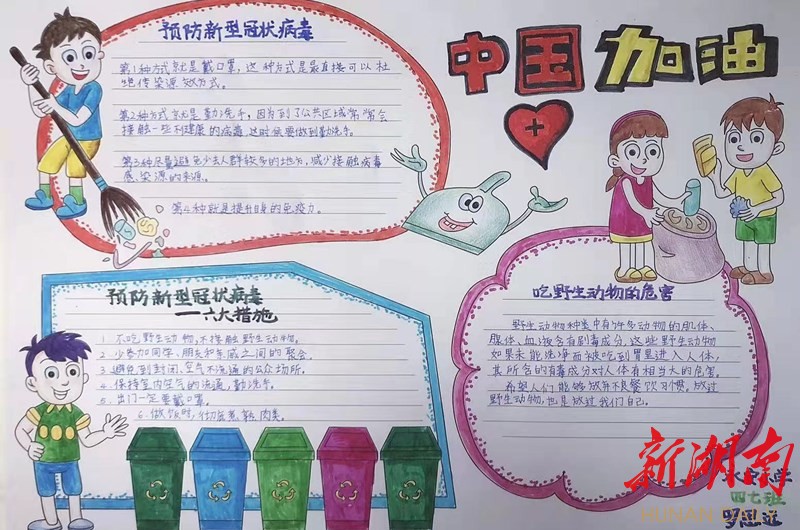 预防新型冠状病毒
第1种方式就是戴口罩，这种方式是最直接可以杜
绝传染源的方式。
第2种方式就是勤洗手，因为到了公共区域常常会
接触一些不健康的病毒，这时候要做到勤洗手。
第3种尽量避免少去人群较多的地方，减少接触病毒
感染源的来源。
第4种就是提升自身的免疫力。
中国加油
预防新型冠状病毒
一六大措施
1. 不吃野生动物，不接触野生动物。
2. 少参加同学、朋友和亲戚之间的聚会。
3. 避免到封闭、空气不流通的公众场所。
4. 保持室内空气的流通，勤洗手。
5. 出门一定要戴口罩。
6. 做饭时，彻底煮熟肉类。
吃野生动物的危害
野生动物种类中有许多动物的肌体、
腺体、血液含有剧毒成分，这些野生动物
如果未能洗净而被吃到胃里进入人体，
其所含的有毒成分对人体有相当大的危害。
希望人们能够放弃不良餐饮习惯。放过
野生动物，也是放过我们自己。
新湖南
HUNAN DAILY
学
四七班